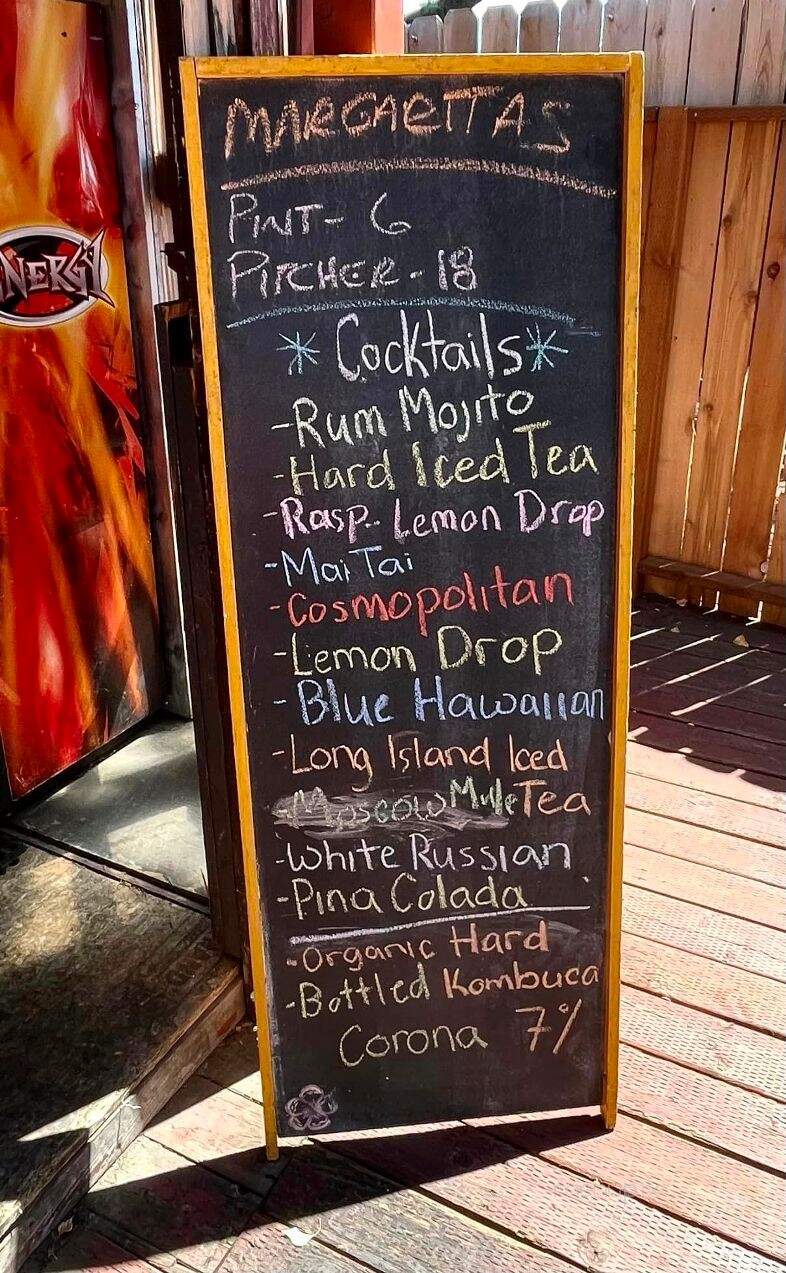 MARGARITAS
PINT- 6
PITCHER- 18
* Cocktails *
-Rum Mojito
-Hard Iced Tea
-Rasp. Lemon Drop
-Mai Tai
-Cosmopolitan
-Lemon Drop
-Blue Hawaiian
-Long Island Iced
-Moscow Mule Tea
-White Russian
-Pina Colada
-Organic Hard
-Bottled Kombuca
Corona 7%
NERGY